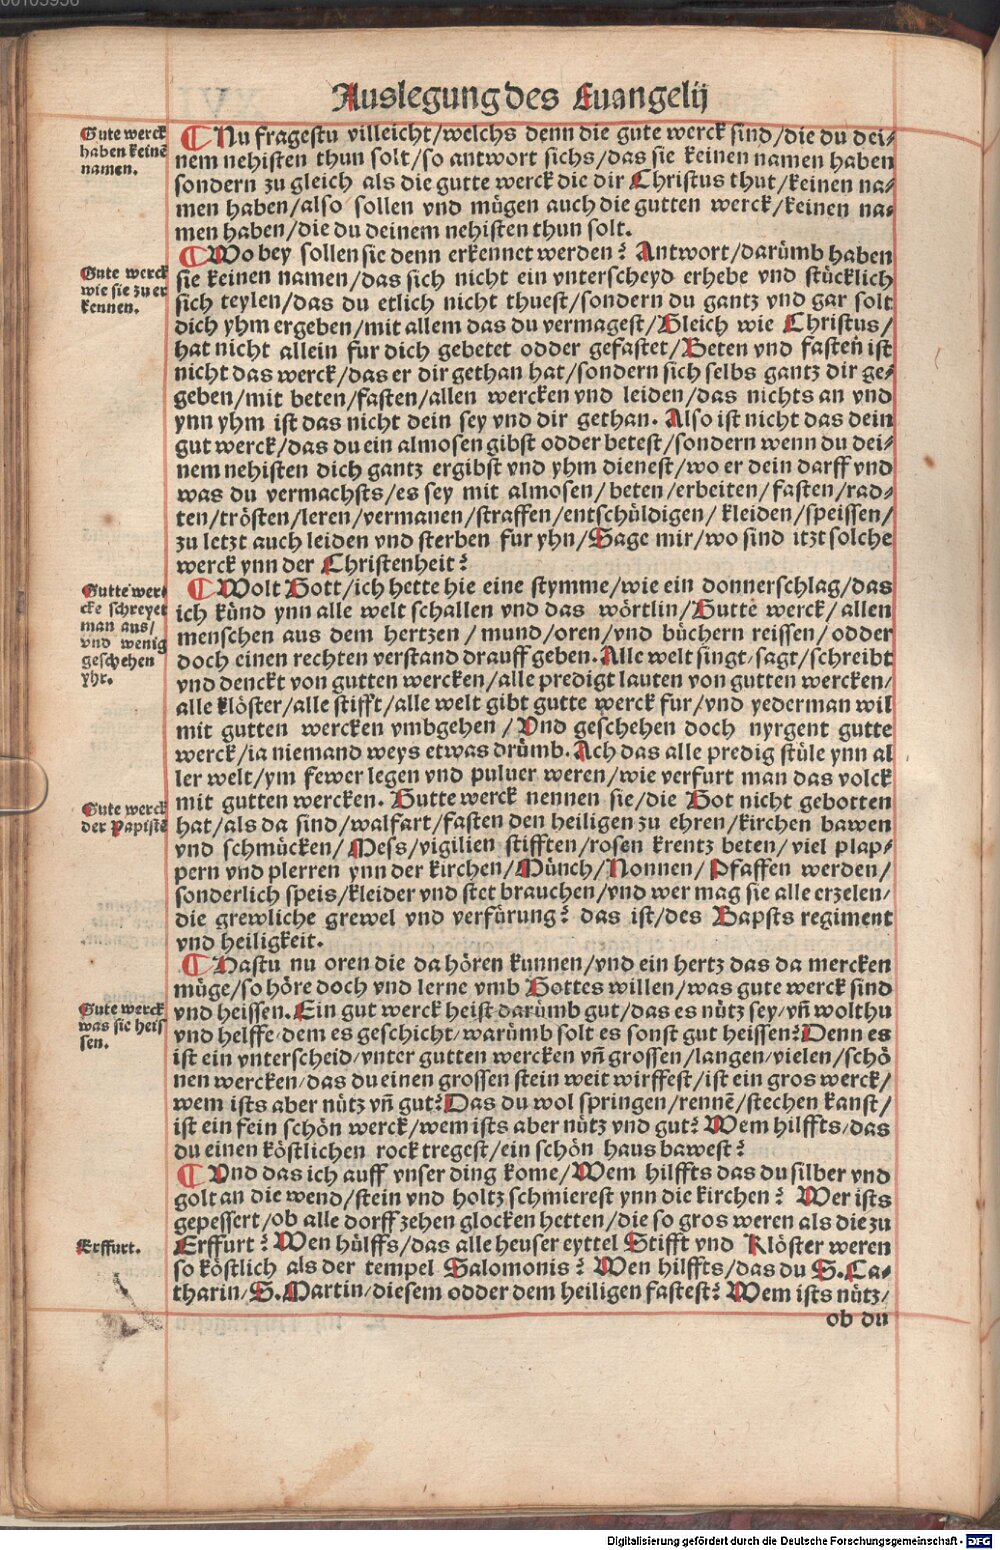 Auslegung des Euangelij
Gute werck
haben keinē
namen.
Nu fragestu villeicht/welchs denn die gute werck sind/die du dei⸗
nem nehisten thun solt/so antwort sichs/das sie keinen namen haben
sondern zu gleich als die gutte werck die dir Christus thut/keinen na⸗
men haben/also sollen vnd mügen auch die gutten werck/keinen na⸗
men haben/die du deinem nehisten thun solt.
Gute werck
wie sie zu er
kennen.
Wo bey sollen sie denn erkennet werden? Antwort/darümb haben
sie keinen namen/das sich nicht ein vnterscheyd erhebe vnd stücklich
sich teylen/das du etlich nicht thuest/sondern du gantz vnd gar solt
dich yhm ergeben/mit allem das du vermagest/Gleich wie Christus/
hat nicht allein fur dich gebetet odder gefastet/Beten vnd fasten ist
nicht das werck/das er dir gethan hat/sondern sich selbs gantz dir ge⸗
geben/mit beten/fasten/allen wercken vnd leiden/das nichts an vnd
ynn yhm ist das nicht dein sey vnd dir gethan. Also ist nicht das dein
gut werck/das du ein almosen gibst odder betest/sondern wenn du dei⸗
nem nehisten dich gantz ergibst vnd yhm dienest/wo er dein darff vnd
was du vermachsts/es sey mit almosen/beten/erbeiten/fasten/rad⸗
ten/trösten/leren/vermanen/straffen/entschüldigen/kleiden/speissen/
zu letzt auch leiden vnd sterben fur yhn/Sage mir/wo sind itzt solche
werck ynn der Christenheit?
Gutte wer⸗
cke schreyet
man aus/
vnd wenig
geschehen
yhr.
Wolt Gott/ich hette hie eine stymme/wie ein donnerschlag/das
ich künd ynn alle welt schallen vnd das wörtlin/Gutte werck/allen
menschen aus dem hertzen/mund/oren/vnd büchern reissen/odder
doch einen rechten verstand drauff geben. Alle welt singt/sagt/schreibt
vnd denckt von gutten wercken/alle predigt lauten von gutten wercken/
alle klöster/alle stifft/alle welt gibt gutte werck fur/vnd yederman wil
mit gutten wercken vmbgehen/Vnd geschehen doch nyrgent gutte
werck/ia niemand weys etwas drümb. Ach das alle predig stüle ynn al
ler welt/ym fewer legen vnd puluer weren/wie verfurt man das volck
Gute werck
der Papistē
mit gutten wercken. Gutte werck nennen sie/die Got nicht gebotten
hat/als da sind/walfart/fasten den heiligen zu ehren/kirchen bawen
vnd schmücken/Mess/vigilien stifften/rosen krentz beten/viel plap⸗
pern vnd plerren ynn der kirchen/Münch/Nonnen/Pfaffen werden/
sonderlich speis/kleider vnd stet brauchen/vnd wer mag sie alle erzelen/
die grewliche grewel vnd verfürung? das ist/des Bapsts regiment
vnd heiligkeit.
Hastu nu oren die da hören kunnen/vnd ein hertz das da mercken
müge/so höre doch vnd lerne vmb Gottes willen/was gute werck sind
Gute werck
was sie heis
sen.
vnd heissen. Ein gut werck heist darümb gut/das es nütz sey/vn̄ wolthu
vnd helffe/dem es geschicht/warümb solt es sonst gut heissen? Denn es
ist ein vnterscheid/vnter gutten wercken vn̄ grossen/langen/vielen/schö
nen wercken/das du einen grossen stein weit wirffest/ist ein gros werck/
wem ists aber nütz vn̄ gut? Das du wol springen/rennē/stechen kanst/
ist ein fein schön werck/wem ists aber nütz vnd gut? Wem hilffts/das
du einen köstlichen rock tregest/ein schön haus bawest?
Vnd das ich auff vnser ding kome/Wem hilffts das du silber vnd
golt an die wend/stein vnd holtz schmierest ynn die kirchen? Wer ists
gepessert/ob alle dorff zehen glocken hetten/die so gros weren als die zu
Erffurt.
Erffurt? Wen hülffs/das alle heuser eyttel Stifft vnd Klöster weren
so köstlich als der tempel Salomonis? Wen hilffts/das du S. Ca⸗
tharin/S. Martin/diesem odder dem heiligen fastest? Wem ists nütz/
ob du
Digitalisierung gefördert durch die Deutsche Forschungsgemeinschaft - DFG